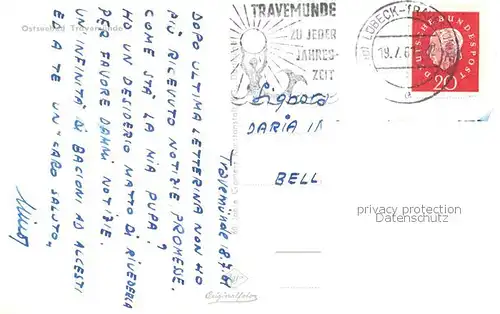 Ostseebad Travemünde
Travemünde 18.7.61
DOPO ULTIMA LETTERINA NON HO
PIÙ RICEVUTO NOTIZIE PROMESSE.
COME STÀ LA MIA PUPA?
HO UN DESIDERIO MATTO DI RIVEDERLA
PER FAVORE DAMMI NOTIZIE.
UN'INFINITA' DI BACIONI AD ALCESTI
ED A TE UN "CARO SALUTO„
TRAVEMÜNDE
ZU JEDER
JAHRES-
ZEIT
LÜBECK-TRA
19.7.6
a
DEUTSCHE BUNDESPOST
20
DARIA
BELL
privacy protection
Datenschutz
Originalfoto